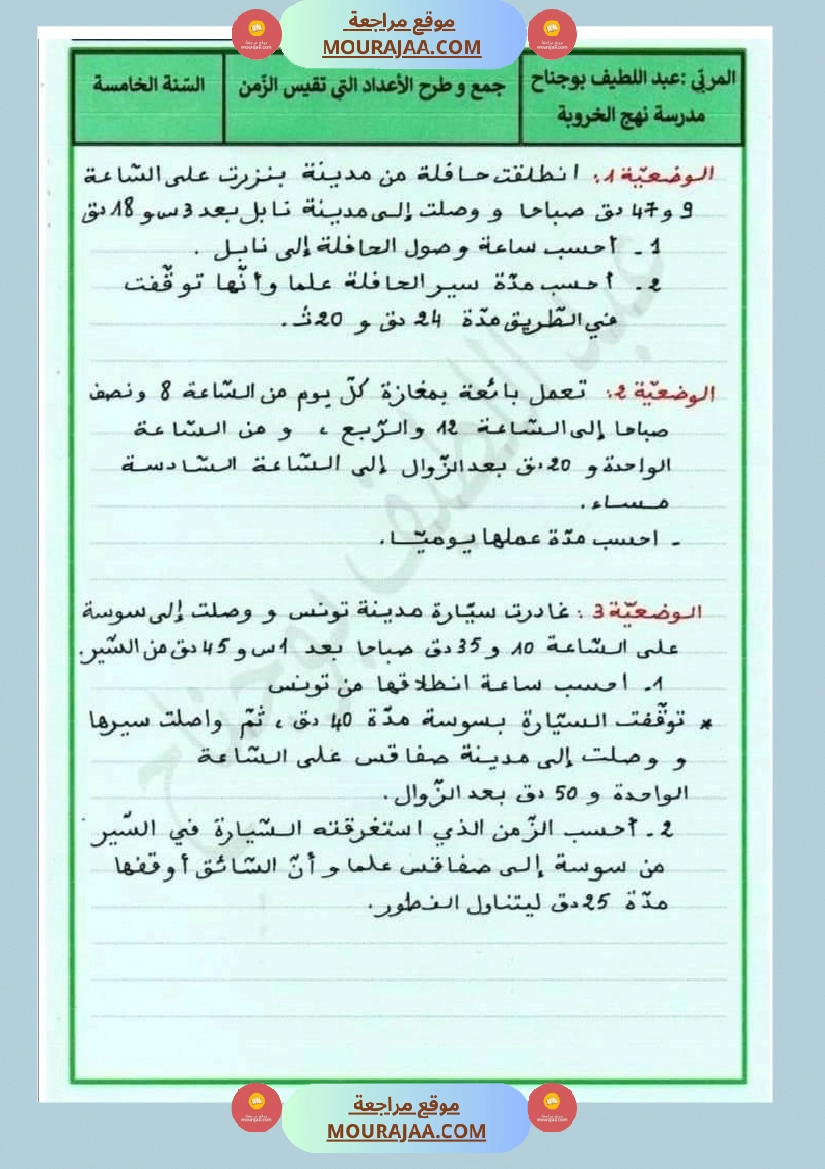 موقع مراجعة
MOURAJAA.COM
المربّي :عبد اللطيف بوجناح
مدرسة نهج الخروبة
جمع و طرح الأعداد التي تقيس الزّمن
السّنة الخامسة
الوضعيّة 1: انطلقت حافلة من مدينة بنزرت على السّاعة
9 و 47 دق صباحا و وصلت إلى مدينة نابل بعد 3س و 18 دق
1 ـ أحسب ساعة وصول الحافلة إلى نابل .
2 ـ أحسب مدّة سير الحافلة علما وأنّها توقّفت
في الطّريق مدّة 24 دق و 20 ث .
الوضعيّة 2: تعمل بائعة بمغازة كلّ يوم من السّاعة 8 ونصف
صباحا إلى السّاعة 12 والرّبع ، و من السّاعة
الواحدة و 20 دق بعد الزّوال إلى السّاعة السّادسة
مساء .
ـ احسب مدّة عملها يوميّا .
الوضعيّة 3 : غادرت سيّارة مدينة تونس و وصلت إلى سوسة
على السّاعة 10 و 35 دق صباحا بعد 1س و 45 دق من السّير.
1 ـ احسب ساعة انطلاقها من تونس
* توقّفت السّيّارة بسوسة مدّة 40 دق ، ثمّ واصلت سيرها
و وصلت إلى مدينة صفاقس على السّاعة
الواحدة و 50 دق بعد الزّوال .
2 ـ أحسب الزّمن الذي استغرقته السّيارة في السّير
من سوسة إلى صفاقس علما و أنّ السّائق أوقفها
مدّة 25 دق ليتناول الفطور .
عبد اللطيف بوجناح
موقع مراجعة
MOURAJAA.COM